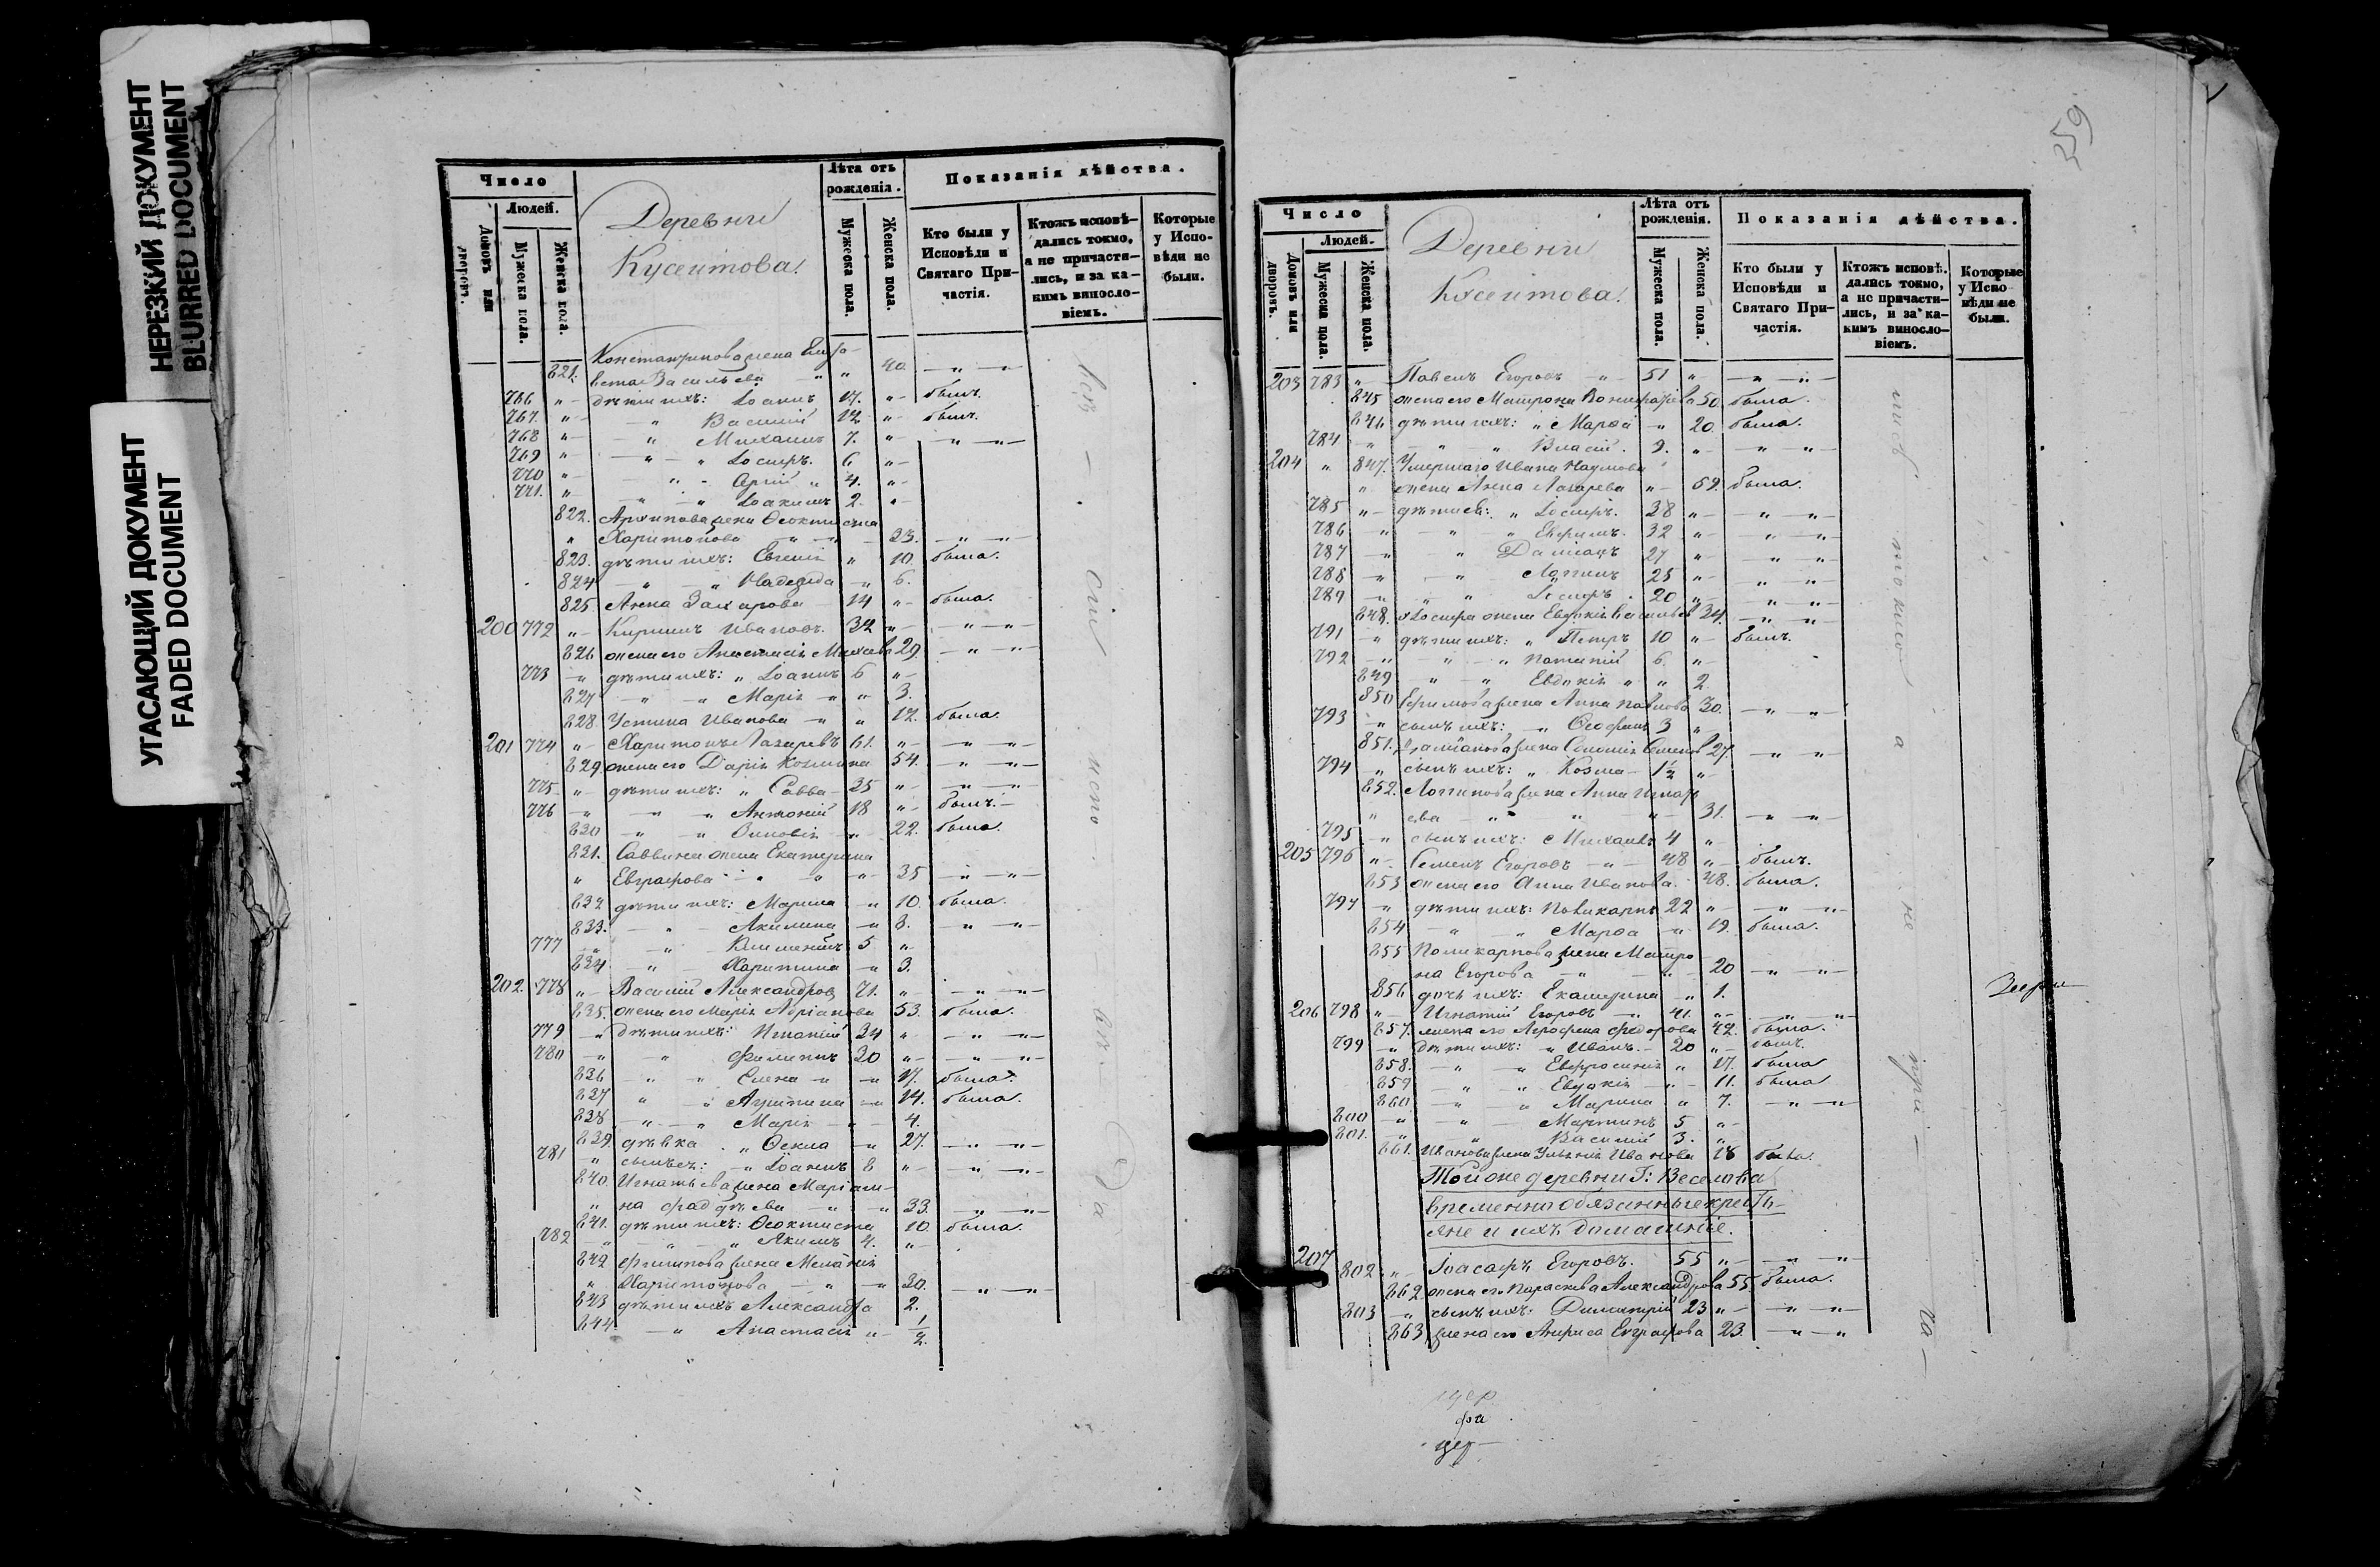 НЕРЕЗКИЙ ДОКУМЕНТ
BLURRED DOCUMENT
УГАСАЮЩИЙ ДОКУМЕНТ
FADED DOCUMENT
Число
Людей.
Домовъ или дворовъ.
Мужеска пола.
Женска пола.
Деревни
Кусеитова.
Лѣта отъ рожденія.
Мужеска пола.
Женска пола.
Показанія дѣйства.
Кто были у Исповѣди и Святаго Причастія.
Ктожъ исповѣ-
дались токмо,
а не причасти-
лись, и за ка-
кимъ винословіемъ.
Которые
у Испо-
вѣди не
были.
Константинова жена
821. Васильева " 40 — " —
766 " дѣти ихъ: Іоаннъ 17. " былъ.
767. " " Василий 12. " былъ.
768 " " Михаилъ 7. " — " —
769 " " Іосифъ. 6 "
770 " " 4. "
771. " " Іоакимъ 2. "
822. Архипова жена Ѳеоктиста
" Харитонова " 33. — " —
823. дѣти ихъ: Евгенія " 10. была.
824 " Надежда " 6.
825. Анна Захарова 14 " была.
200 772 " Кириллъ Ивановъ. 32 " — " —
826 жена его Анастасія 29. — " —
773 " дѣти ихъ: " Іоаннъ 6 "
827 " " Марія " 3.
828. Устина Иванова " 12. была.
201 774 " Харитонъ Лазаревъ 61. " — " —
829. жена его Дарія Козмина 54. — " —
775 " дѣти ихъ: " Савва 25 " — " —
776 " " Антоній 18 " былъ.
830 " " Зиновія " 22. была.
831. Саввина жена Екатерина
" Евграфова " 35 — " —
832 дѣти ихъ: Марина " 10. была.
833. " Акилина " 8. — " —
777 " " Климентій 5 "
834 " Харитина " 3.
202. 778 " Василий Александров 71. " — " —
835. жена его Марія Адріанова 53. была.
779 " дѣти ихъ: Игнатий 34 " — " —
780 " " Филиппъ 30 " — " —
836 " " Елена " 17. была.
837 " " " 14. была.
838 " " Марія 4.
839. дѣвка " Ѳекла " 27. — " —
781 " сынъ ея: " Іоаннъ 8 " — " —
840. Игнатьева жена Маріам-
" на Фаддѣева " 33. — " —
841. дѣти ихъ: Ѳеоктиста 10. была.
782 " " Акимъ 4. "
842 Филиппова жена Меланія
" Харитонова " 30. — " —
843 дѣти ихъ Александра 2.
844 " Анастасія " 1/2.
всѣ
сіи
испо
вѣ
да
259
Число
Людей.
Домовъ или дворовъ.
Мужеска пола.
Женска пола.
Деревни
Кусеитова.
Лѣта отъ рожденія.
Мужеска пола.
Женска пола.
Показанія дѣйства.
Кто были у Исповѣди и Святаго Причастія.
Ктожъ исповѣ.
дались токмо,
а не причасти-
лись, и за ка-
кимъ винословіемъ.
Которые
у Испо-
вѣди не
были.
203 783 " Павелъ Егоровъ " 51 " — " —
845 жена его Матрона 50. была.
846 дѣти ихъ: " Марѳа " 20. была.
784 " " Власій. 9. " — " —
204 " 847. Умершаго Ивана Наумова
" жена Анна Лазарева " 59. была.
785 " дѣти ея: " Іосифъ. 38 " — " —
786 " " Ефимъ. 32 " — " —
787 " " Даміанъ 27 " — " —
788 " " Логинъ 25 " — " —
789 " " Іосифъ. 20 " — " —
848. Іосифа жена Евдокія 34. — " —
791 " дѣти ихъ: " Петръ 10 " былъ.
792 " " 6. "
849 " " Евдокія " 2.
850 Ефимова жена Анна Павлова 30. — " —
793 " сынъ ихъ: " Ѳеофанъ 3 "
851. Даміанова жена Семен 27. — " —
794 " сынъ ихъ: " Козма 1 1/2 "
852. Логинова жена Анна Игнать
" ева " 31. — " —
795 " сынъ ихъ: Михаилъ 4 "
205 796 " Семенъ Егоровъ " 48 " былъ.
853 жена его Анна Иванова. 48. была.
797 " дѣти ихъ: Поликарпъ 22 " — " —
854 " " Марѳа " 19. была.
855 Поликарпова жена Матро
на Егорова " 20 — " —
856 дочь ихъ: Екатерина " 1.
206 798 " Игнатій Егоровъ " 41. " — " —
857. жена его Агрофена Федорова 42. была.
799 " дѣти ихъ: " Иванъ. 20 " былъ.
858. " " Евфросинія " 17. была
859 " " Евдокія " 11. была
860. " " Марина " 7. — " —
800 " " Мартинъ 5 "
801. " " Василий 3. "
861. Иванова жена Ульянія Иванова 18 была.
Той же деревни Г: Веселова
временно обязанные крестья-
яне и ихъ домашніе.
207 802 " Іоасафъ Егоровъ. 55 " — " —
862. жена его Параскева Александрова 55. была.
803 " сынъ ихъ: Димитрій 23 " — " —
863. жена его Анфиса Евграфова 23. — " —
токмо
а
не
при
ча